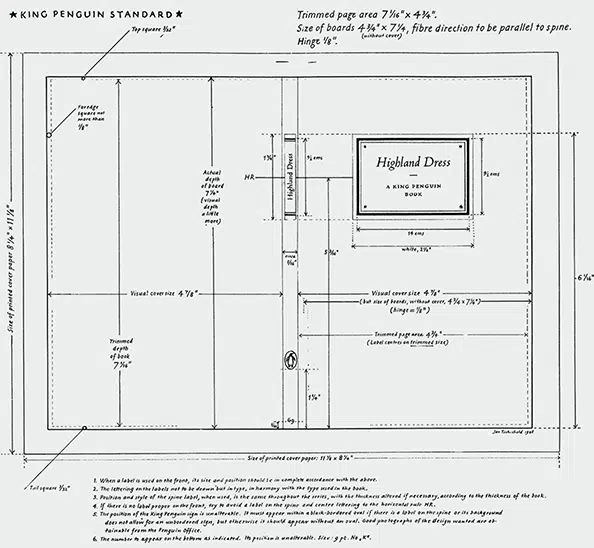 ★KING PENGUIN STANDARD★
Trimmed page area 7 1/16" × 4 3/4".
Size of boards 4 3/4" × 7 1/4, fibre direction to be parallel to spine.
(without cover)
Hinge 1/8".
Top square 3/32"
Foredge
square not
more than
1/8"
Actual
depth
of board
7 1/4"
(visual
depth
a little
more)
1 3/4"
HR
Highland Dress
9 1/2 ems
Highland Dress
A KING PENGUIN
BOOK
9 1/2 ems
14 ems
white, 2 1/2"
Size of printed cover paper 8 1/4" × 11 1/2"
circa
3/16"
Visual cover size 4 7/8"
Visual cover size 4 7/8"
(but size of boards, without cover, 4 3/4 × 7 1/4")
(hinge = 1/8")
Trimmed page area 4 3/4"
(Label centres on trimmed size)
Trimmed
depth
of book
7 1/16"
1 1/4"
69
Jan Tschichold 1948
Size of printed cover paper: 11 1/2 × 8 1/4"
Tail square 3/32"
1. When a label is used on the front, its size and position should be in complete accordance with the above.
2. The lettering on the labels not to be drawn but in type, in harmony with the type used in the book.
3. Position and style of the spine label, when used, is the same throughout the series, with the thickness altered if necessary, according to the thickness of the book.
4. If there is no label proper on the front, try to avoid a label on the spine and centre lettering to the horizontal rule HR.
5. The position of the King Penguin sign is unalterable. It must appear within a black-bordered oval if there is a label on the spine or its background
does not allow for an unbordered sign, but otherwise it should appear without an oval. Good photographs of the design wanted are ob-
tainable from the Penguin Office.
6. The number to appear on the bottom as indicated. Its position is unalterable. Size: 9 pt.